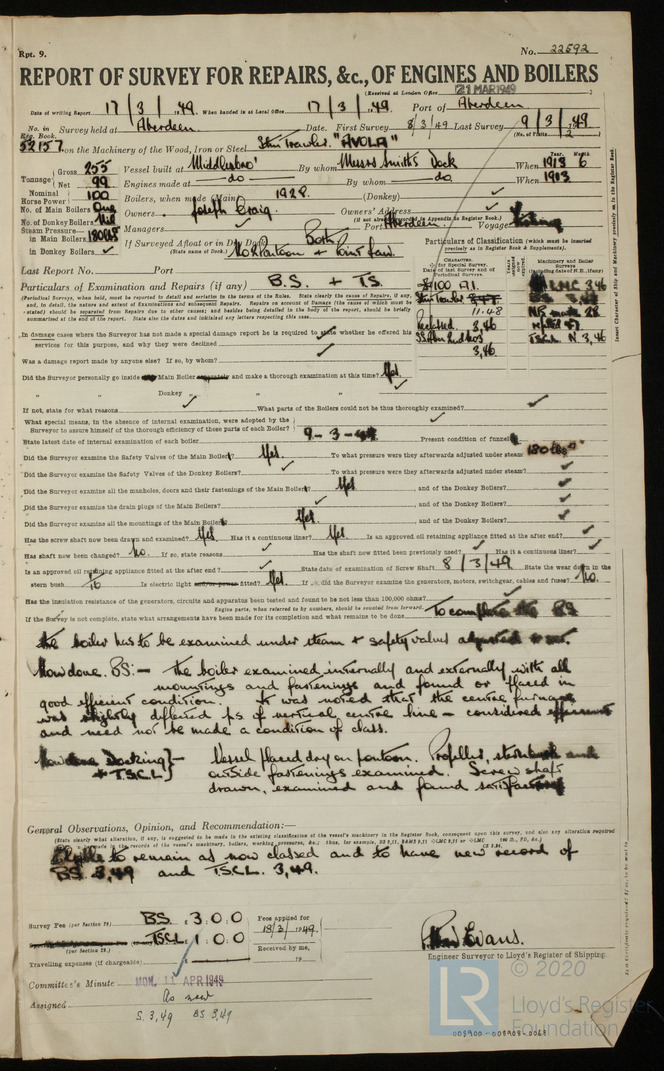 Rpt. 9.
No. 22592
REPORT OF SURVEY FOR REPAIRS, &c., OF ENGINES AND BOILERS
(Received at London Office 21 MAR 1949 )
Date of writing Report 17/3/49. When handed in at Local Office 17/3/49. Port of Aberdeen
No. in Reg. Book. Survey held at Aberdeen. Date. First Survey 8/3/49 Last Survey 9/3/49
(No. of Visits 2 )
52157 on the Machinery of the Wood, Iron or Steel Stm Trawler "AVOLA"
Tonnage Gross 255 Vessel built at Middlesbro' By whom Messrs Smiths Dock When 1913 6
Net 99 Engines made at do By whom do When 1913
Nominal Horse Power 100 Boilers, when made (Main) 1928. (Donkey)
No. of Main Boilers One Owners Joseph Craig. Owners' Address
(if not already recorded in Appendix to Register Book.)
No. of Donkey Boilers Nil Managers Port Aberdeen. Voyage
Steam Pressure— in Main Boilers 180 lbs If Surveyed Afloat or in Dry Dock Both
in Donkey Boilers (State name of Dock.) No 2 Pontoon + Point Law.
Particulars of Classification (which must be inserted precisely as in Register Book & Supplements).
Last Report No. Port
Particulars of Examination and Repairs (if any) B.S. + T.S.
11.48
3,46
3,46
In damage cases where the Surveyor has not made a special damage report he is required to state whether he offered his
services for this purpose, and why they were declined
Was a damage report made by anyone else? If so, by whom?
Did the Surveyor personally go inside Main Boiler and make a thorough examination at this time? Yes.
" " Donkey " "
If not, state for what reasons What parts of the Boilers could not be thus thoroughly examined?
What special means, in the absence of internal examination, were adopted by the
Surveyor to assure himself of the thorough efficiency of those parts of each Boiler?
State latest date of internal examination of each boiler 9-3-49 Present condition of funnel
Did the Surveyor examine the Safety Valves of the Main Boiler? Yes. To what pressure were they afterwards adjusted under steam? 180 lbs
Did the Surveyor examine the Safety Valves of the Donkey Boilers? To what pressure were they afterwards adjusted under steam?
Did the Surveyor examine all the manholes, doors and their fastenings of the Main Boilers? Yes , and of the Donkey Boilers?
Did the Surveyor examine the drain plugs of the Main Boilers? , and of the Donkey Boilers?
Did the Surveyor examine all the mountings of the Main Boilers? Yes. , and of the Donkey Boilers?
Has the screw shaft now been drawn and examined? Yes. Has it a continuous liner? Yes. Is an approved oil retaining appliance fitted at the after end?
Has shaft now been changed? No. If so, state reasons Has the shaft now fitted been previously used? Has it a continuous liner?
Is an approved oil retaining appliance fitted at the after end? State date of examination of Screw Shaft 8/3/49 State the wear down in the
stern bush Is electric light fitted? Yes. If so, did the Surveyor examine the generators, motors, switchgear, cables and fuses? No.
Has the insulation resistance of the generators, circuits and apparatus been tested and found to be not less than 100,000 ohms?
Engine parts, when referred to by numbers, should be counted from forward.
If the Survey is not complete, state what arrangements have been made for its completion and what remains to be done To complete the BS
the boiler has to be examined under steam + safety valves adjusted
Now done. BS:— the boiler examined internally and externally with all
mountings and fastenings and found or placed in
good efficient condition. It was noted that the centre furnace
was slightly deflected ps of vertical centre line — considered efficient
and need not be made a condition of class.
Now done Docking }— Vessel placed dry on pontoon. Propeller, sternbush and
+ T.S.CL} outside fastenings examined. Screw shaft
drawn, examined and found satisfactory
General Observations, Opinion, and Recommendation:—
Eligible to remain as now classed and to have new record of
BS 3,49 and TSCL. 3,49.
Survey Fee (per Section 29) BS. 3:0:0 Fees applied for
TSCL 1:0:0 18/3/1949.
(per Section 29.) Received by me,
Travelling expenses (if chargeable) 19
Evans.
Engineer Surveyor to Lloyd's Register of Shipping.
Committee's Minute MON. 11 APR 1949
Assigned As now
S. 3,49 BS 3,49
LR © 2020
Lloyd's Register
Foundation
008900-008908-0068